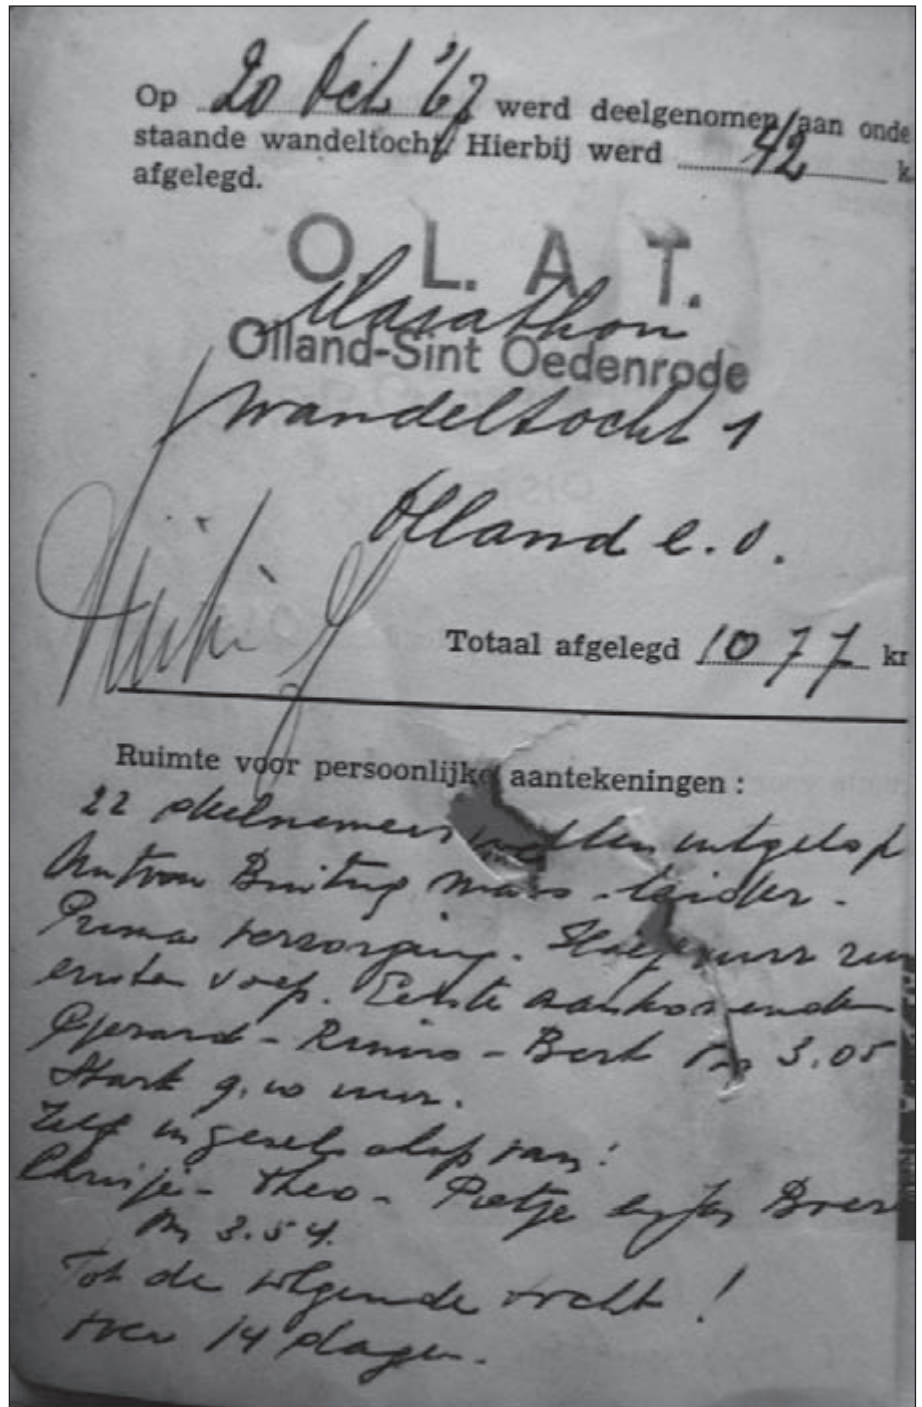 Op 20 Oct '67 werd deelgenomen aan onde
staande wandeltocht. Hierbij werd 42 k
afgelegd.
O. L. A. T.
Marathon
Olland-Sint Oedenrode
wandeltocht 1
Olland e.o.
Totaal afgelegd 1077 kr
Ruimte voor persoonlijke aantekeningen :
22 deelnemers uitgelop
Anton mars-leider.
Prima verzorging.
Eerste aankomenden
Gerard - Rinus - Bert om 3.05
Start 9.10 uur.
Zelf in gezelschap van:
Theo - Pietje en Jan
om 3.54.
Tot de volgende tocht !
over 14 dagen.